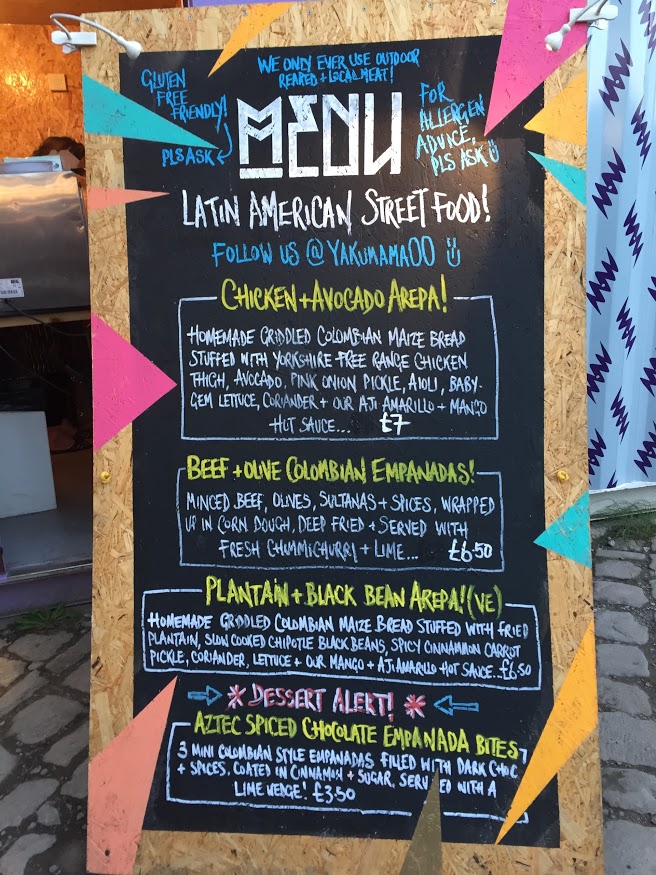 WE ONLY EVER USE OUTDOOR
REARED + LOCAL MEAT!
GLUTEN
FREE
FRIENDLY!
PLS ASK
MENU
FOR
ALLERGEN
ADVICE,
PLS ASK
LATIN AMERICAN STREET FOOD!
FOLLOW US @ YAKUMAMAOO
CHICKEN + AVOCADO AREPA!
HOMEMADE GRIDDLED COLOMBIAN MAIZE BREAD
STUFFED WITH YORKSHIRE FREE RANGE CHICKEN
THIGH, AVOCADO, PINK ONION PICKLE, AIOLI, BABY-
GEM LETTUCE, CORIANDER + OUR AJI AMARILLO + MANGO
HOT SAUCE... £7
BEEF + OLIVE COLOMBIAN EMPANADAS!
MINCED BEEF, OLIVES, SULTANAS + SPICES, WRAPPED
UP IN CORN DOUGH, DEEP FRIED + SERVED WITH
FRESH CHIMMICHURRY + LIME... £6.50
PLANTAIN + BLACK BEAN AREPA! (VE)
HOMEMADE GRIDDLED COLOMBIAN MAIZE BREAD STUFFED WITH FRIED
PLANTAIN, SLOW COOKED CHIPOTLE BLACK BEANS, SPICY CINNAMMON CARROT
PICKLE, CORIANDER, LETTUCE + OUR MANGO + AJI AMARILLO HOT SAUCE...£6.50
DESSERT ALERT!
AZTEC SPICED CHOCOLATE EMPANADA BITES
3 MINI COLOMBIAN STYLE EMPANADAS FILLED WITH DARK CHOC
+ SPICES, COATED IN CINNAMON + SUGAR, SERVED WITH A
LIME WEDGE! £3.50